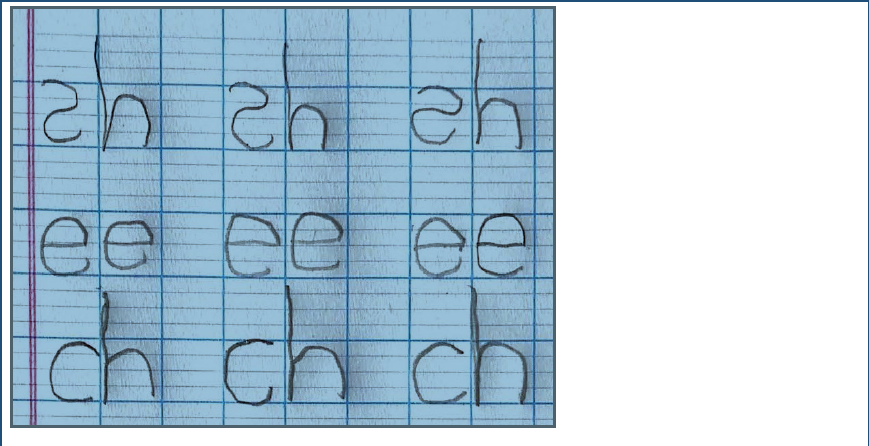 sh sh sh
ee ee ee
ch ch ch